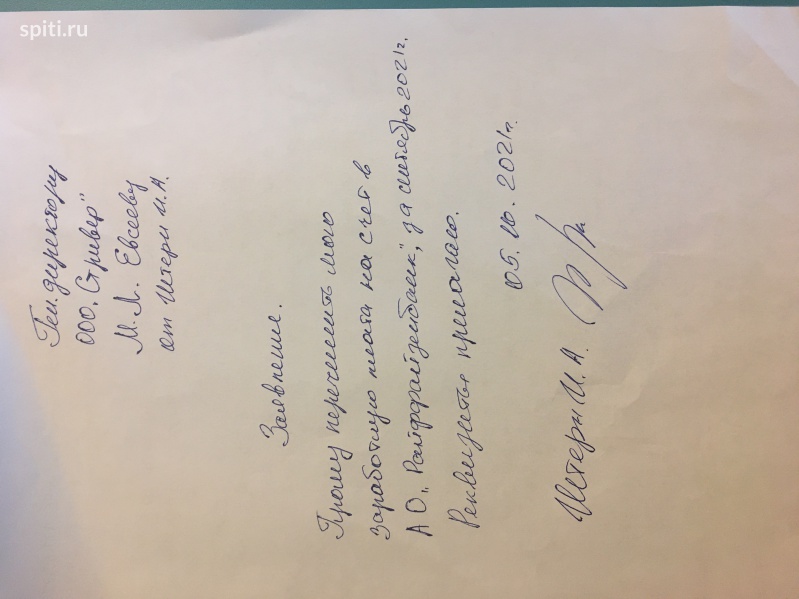 spiti.ru
Ген. директору
ООО „Стривер"
М. Л. Евсееву
от Штерн И.А.
Заявление.
Прошу перечислить мою
заработную плата на счет в
АО „Райффайзенбанк", за сентябрь 2021г.
Реквизиты прилагаю.
05. 10. 2021г.
Штерн И. А.